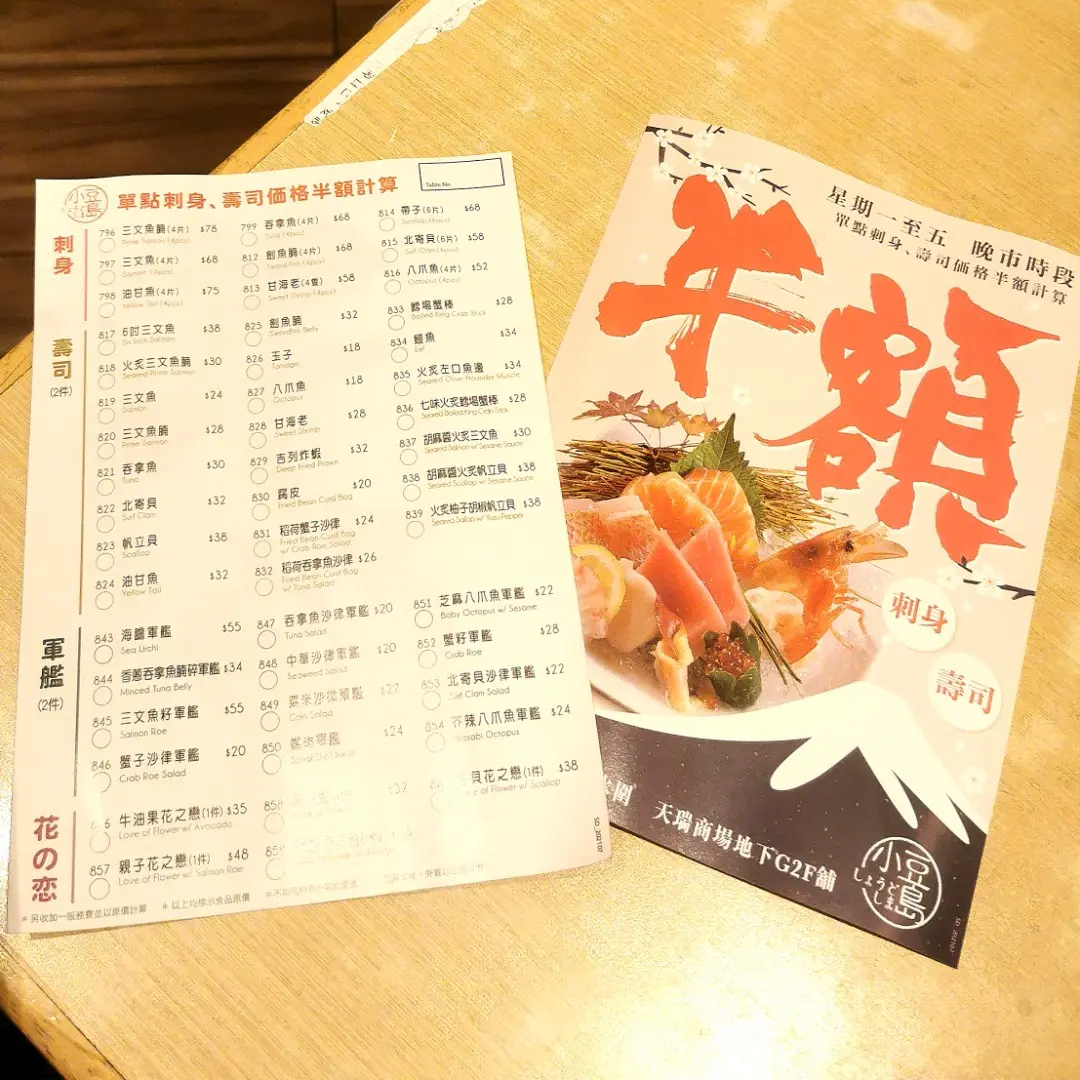 小豆島
しょうどしま
單點刺身、壽司価格半額計算
Table No.
刺身
796 三文魚腩(4片) $78
Prime Salmon (4pcs)
797 三文魚(4片) $68
Salmon (4pcs)
798 油甘魚(4片) $75
Yellow Tail (4pcs)
799 吞拿魚(4片) $68
Tuna (4pcs)
812 劍魚腩(4片) $68
Sword Fish (4pcs)
813 甘海老(4隻) $58
Sweet Shrimp (4pcs)
814 帶子(6片) $68
Scallop (6pcs)
815 北寄貝(6片) $58
Surf Clam (6pcs)
816 八爪魚(4片) $52
Octopus (4pcs)
壽司
(2件)
817 6吋三文魚 $38
Six Inch Salmon
818 火炙三文魚腩 $30
Seared Prime Salmon
819 三文魚 $24
Salmon
820 三文魚腩 $28
Prime Salmon
821 吞拿魚 $30
Tuna
822 北寄貝 $32
Surf Clam
823 帆立貝 $38
Scallop
824 油甘魚 $32
Yellow Tail
825 劍魚腩 $32
Swordfish Belly
826 玉子 $18
Tamago
827 八爪魚 $18
Octopus
828 甘海老 $28
Sweet Shrimp
829 吉列炸蝦 $32
Deep Fried Prawn
830 腐皮 $20
Fried Bean Curd Bag
831 稻荷蟹子沙律 $24
Fried Bean Curd Bag
w/ Crab Roe Salad
832 稻荷吞拿魚沙律 $26
Fried Bean Curd Bag
w/ Tuna Salad
833 鱈場蟹棒 $28
Boiled King Crab Stick
834 鰻魚 $34
Eel
835 火炙左口魚邊 $34
Seared Olive Flounder Muscle
836 七味火炙鱈場蟹棒 $28
Seared Boiled King Crab Stick
837 胡麻醬火炙三文魚 $30
Seared Salmon w/ Sesame Sauce
838 胡麻醬火炙帆立貝 $38
Seared Scallop w/ Sesame Sauce
839 火炙柚子胡椒帆立貝 $38
Seared Sallop w/ Yuzu Pepper
軍艦
(2件)
843 海膽軍艦 $55
Sea Urchi
844 香蔥吞拿魚腩碎軍艦 $34
Minced Tuna Belly
845 三文魚籽軍艦 $55
Salmon Roe
846 蟹子沙律軍艦 $20
Crab Roe Salad
847 吞拿魚沙律軍艦 $20
Tuna Salad
848 中華沙律軍艦 $20
Seaweed Salad
849 粟米沙律軍艦 $22
Corn Salad
850 軍艦 $24
851 芝麻八爪魚軍艦 $22
Baby Octopus w/ Sesame
852 蟹籽軍艦 $28
Crab Roe
853 北寄貝沙律軍艦 $22
Surf Clam Salad
854 芥辣八爪魚軍艦 $24
Wasabi Octopus
花の恋
牛油果花之戀(1件) $35
Love of Flower w/ Avocado
857 親子花之戀(1件) $48
Love of Flower w/ Salmon Roe
貝花之戀(1件) $38
Love of Flower w/ Scallop
*另收加一服務費並以原價計算
*以上均標示食品原價
SD 202107
星期一至五 晚市時段
單點刺身、壽司価格半額計算
半額
刺身
壽司
圍 天瑞商場地下G2F舖
小豆島
しょうどしま